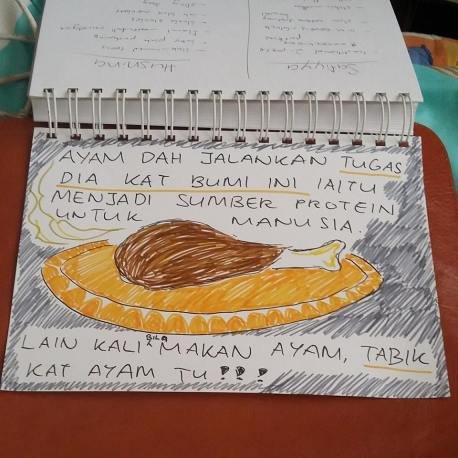 Husnina
Sakiyya
AYAM DAH JALANKAN TUGAS
DIA KAT BUMI INI IAITU
MENJADI SUMBER PROTEIN
UNTUK MANUSIA.
LAIN KALI BILA MAKAN AYAM, TABIK
KAT AYAM TU!!!